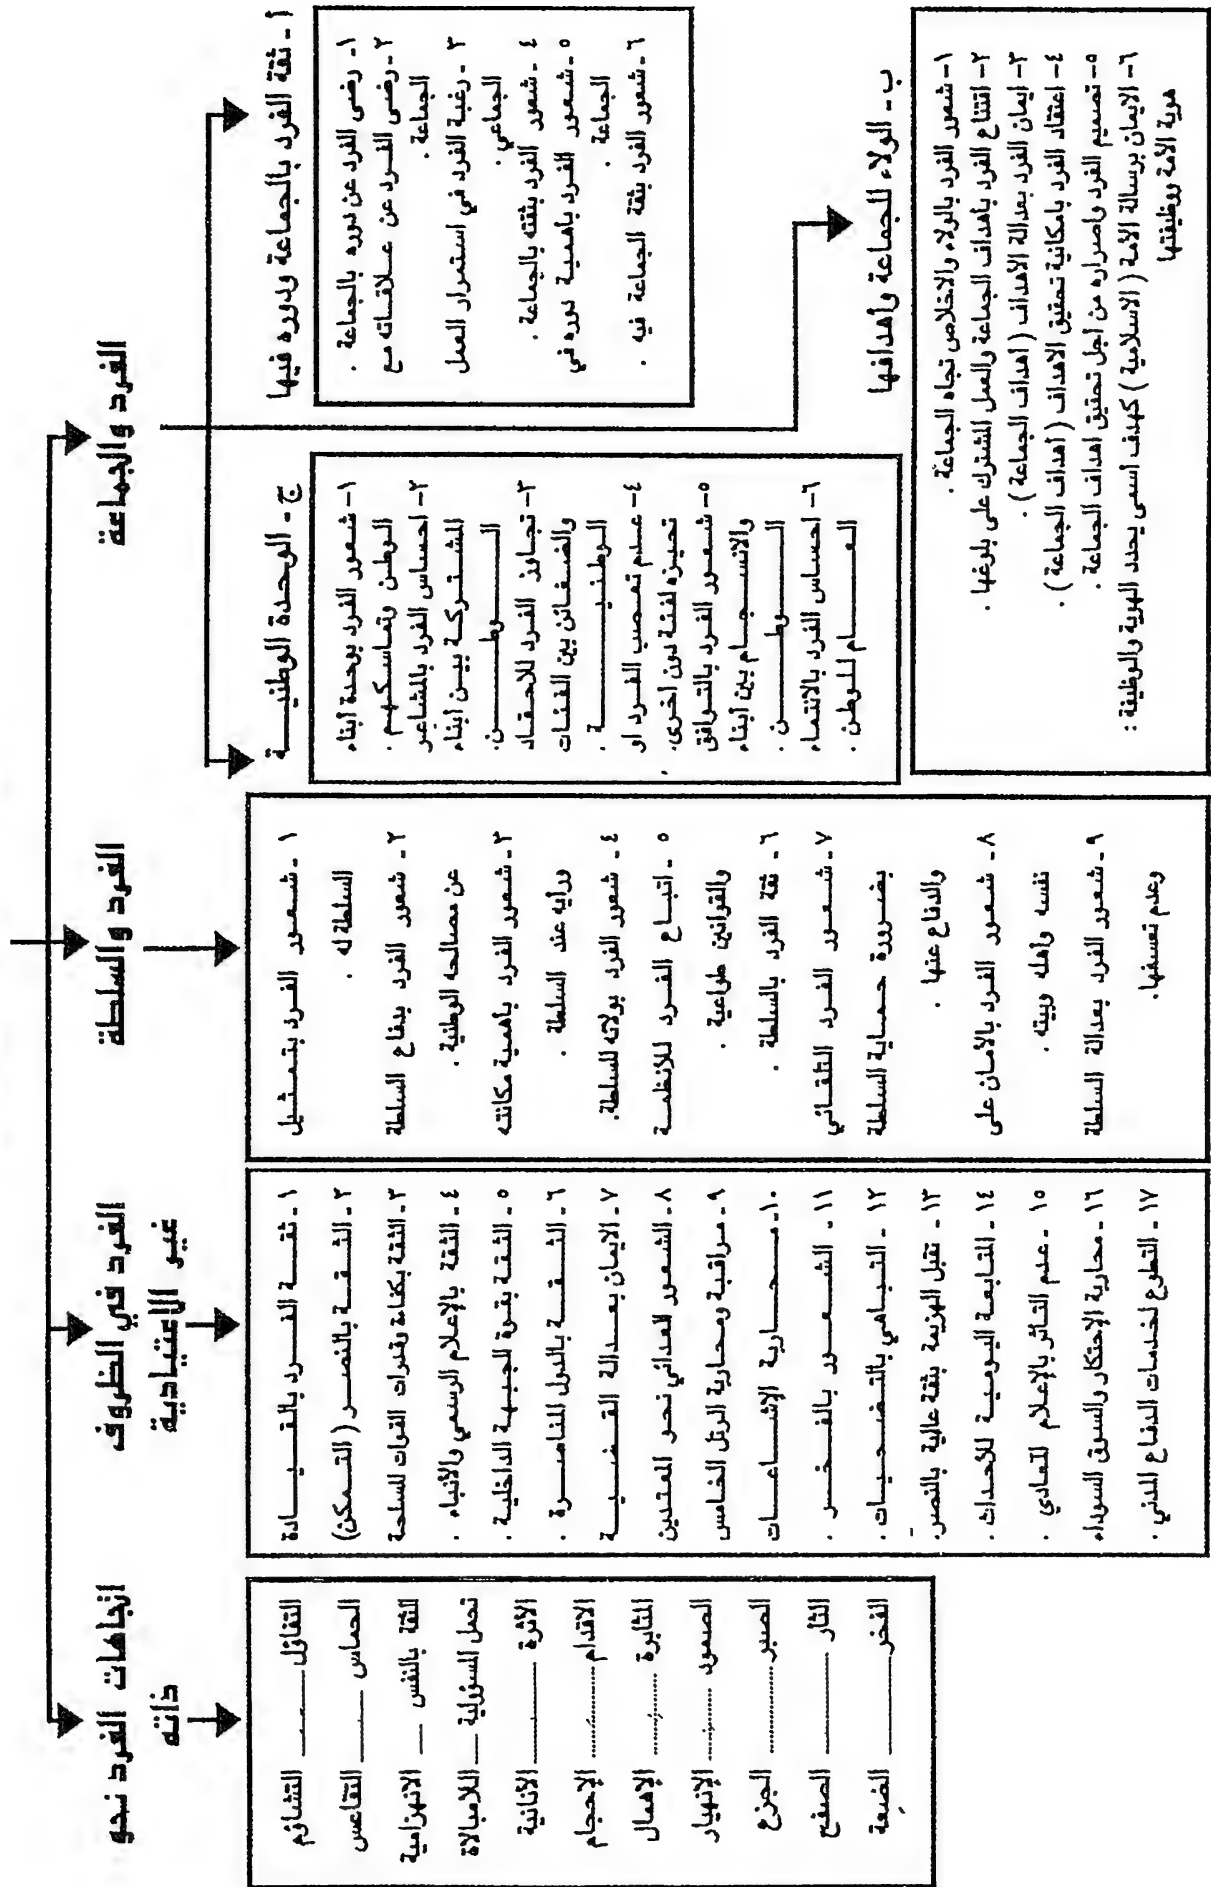 الفرد والجماعة
أ - ثقة الفرد بالجماعة ودوره فيها
١- رضى الفرد عن دوره بالجماعة .
٢- رضى الفرد عن علاقاته مع
الجماعة .
٣ - رغبة الفرد في استمرار العمل
الجماعي .
٤ - شعور الفرد بثقته بالجماعة .
٥ - شعور الفرد باهمية دوره في
الجماعة .
٦ - شعور الفرد بثقة الجماعة فيه .
ب - الولاء للجماعة وأهدافها
١- شعور الفرد بالولاء والاخلاص تجاه الجماعة .
٢- اقتناع الفرد باهداف الجماعة والعمل المشترك على بلوغها .
٣- ايمان الفرد بعدالة الاهداف ( اهداف الجماعة ) .
٤- اعتقاد الفرد بامكانية تحقيق الاهداف ( اهداف الجماعة ) .
٥- تصميم الفرد واصراره من اجل تحقيق اهداف الجماعة .
٦- الايمان برسالة الأمة ( الاسلامية ) كهدف اسمى يحدد الهوية والوظيفة :
هوية الأمة ووظيفتها
ج - الوحدة الوطنيـــة
١- شعور الفرد بوحدة أبناء
الوطن وتماسكهم .
٢- احساس الفرد بالمشاعر
المشتركة بين أبناء
الوطن.
٣- تجاوز الفرد للاحقاد
والضغائن بين الفئات
الوطنية .
٤- عدم تعصب الفرد او
تحيزه لفئة دون اخرى.
٥- شعور الفرد بالتوافق
والانسجام بين أبناء
الوطن .
٦- احساس الفرد بالانتماء
العام للوطن .
الفرد والسلطة
١ - شعور الفرد بتمثيل
السلطة له .
٢ - شعور الفرد بدفاع السلطة
عن مصالحه الوطنية .
٣ - شعور الفرد باهمية مكانته
ورايه عند السلطة .
٤ - شعور الفرد بولائه للسلطة.
٥ - اتباع الفرد للانظمة
والقوانين طواعية .
٦ - ثقة الفرد بالسلطة .
٧ - شعور الفرد التلقائي
بضرورة حماية السلطة
والدفاع عنها .
٨ - شعور الفرد بالأمان على
نفسه وأهله وبيته .
٩ - شعور الفرد بعدالة السلطة
وعدم تعسفها.
الفرد في الظروف
غير الاعتيادية
١ - ثقة الفرد بالقيادة
٢ - الثقة بالنصر ( التمكن)
٣ - الثقة بكفاءة وقدرات القوات المسلحة
٤ - الثقة بالإعلام الرسمي والأنباء .
٥ - الثقة بقوة الجبهة الداخلية .
٦ - الثقة بالدول المناصرة .
٧ - الايمان بعدالة القضية
٨ - الشعور العدائي نحو المعتدين
٩ - مراقبة ومحاربة الرتل الخامس
١٠ - محاربة الإشاعات
١١ - الشعور بالفخر .
١٢ - التباهي بالتضحيات .
١٣ - تقبل الهزيمة بثقة عالية بالنصر.
١٤ - المتابعة اليومية للأحداث .
١٥ - عدم التاثر بالإعلام المعادي .
١٦ - محاربة الإحتكار والسوق السوداء
١٧ - التطوع لخدمات الدفاع المدني .
اتجاهات الفرد نحو
ذاته
التفاؤل ــــــ التشاؤم
الحماس ــــــ التقاعس
الثقة بالنفس ــــــ الانهزامية
تحمل المسؤولية ــــــ اللامبالاة
الأثرة ــــــ الأنانية
الاقدام .......... الإحجام
المثابرة .......... الإهمال
الصمود .......... الإنهيار
الصبر .......... الجزع
الثار ــــــ الصفح
الفخر ــــــ الضعة